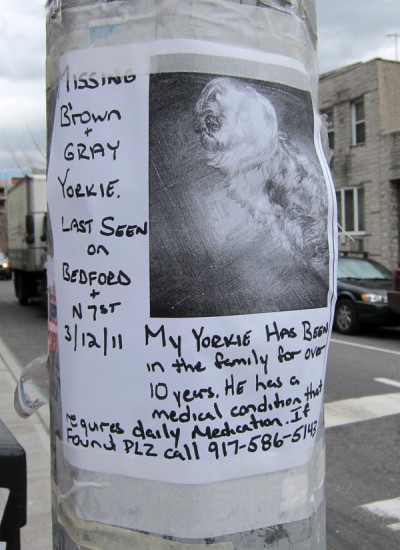 MISSING
Brown
+
GRAY
YORKIE.
LAST SEEN
on
BEDFORD
+
N 7ST
3/12/11
My YORKIE HAS BEEN
in the family for over
10 years. HE has a
medical condition that
requres daily Medication. If
Found PLZ call 917-586-5143